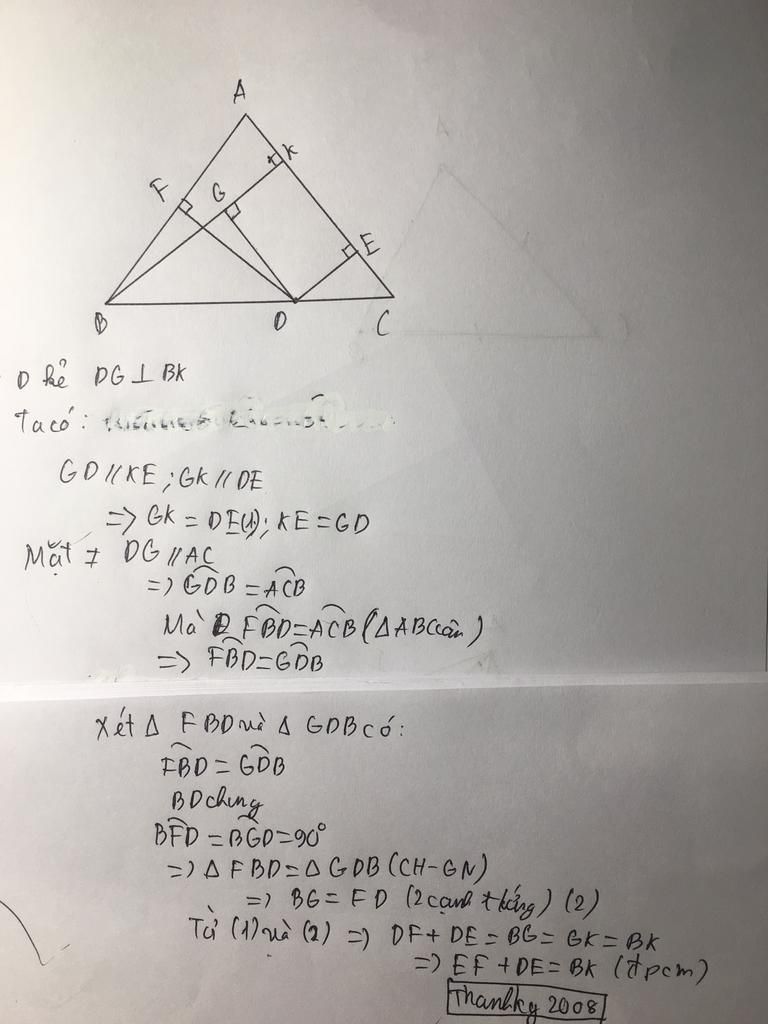 A
K
F
G
E
B
D
C
D kẻ DG ⊥ BK
Ta có:
GD // KE ; GK // DE
=> GK = DE(1); KE = GD
Mặt ≠ DG // AC
=> GDB = ACB
Mà FBD = ACB (Δ ABC cân)
=> FBD = GDB
Xét Δ FBD và Δ GDB có:
FBD = GDB
BD chung
BFD = BGD = 90°
=> Δ FBD = Δ GDB (CH-GN)
=> BG = FD (2 cạnh tứ) (2)
Từ (1) và (2) => DF + DE = BG = GK = BK
=> EF + DE = BK (đpcm)
Thanhkg 2008